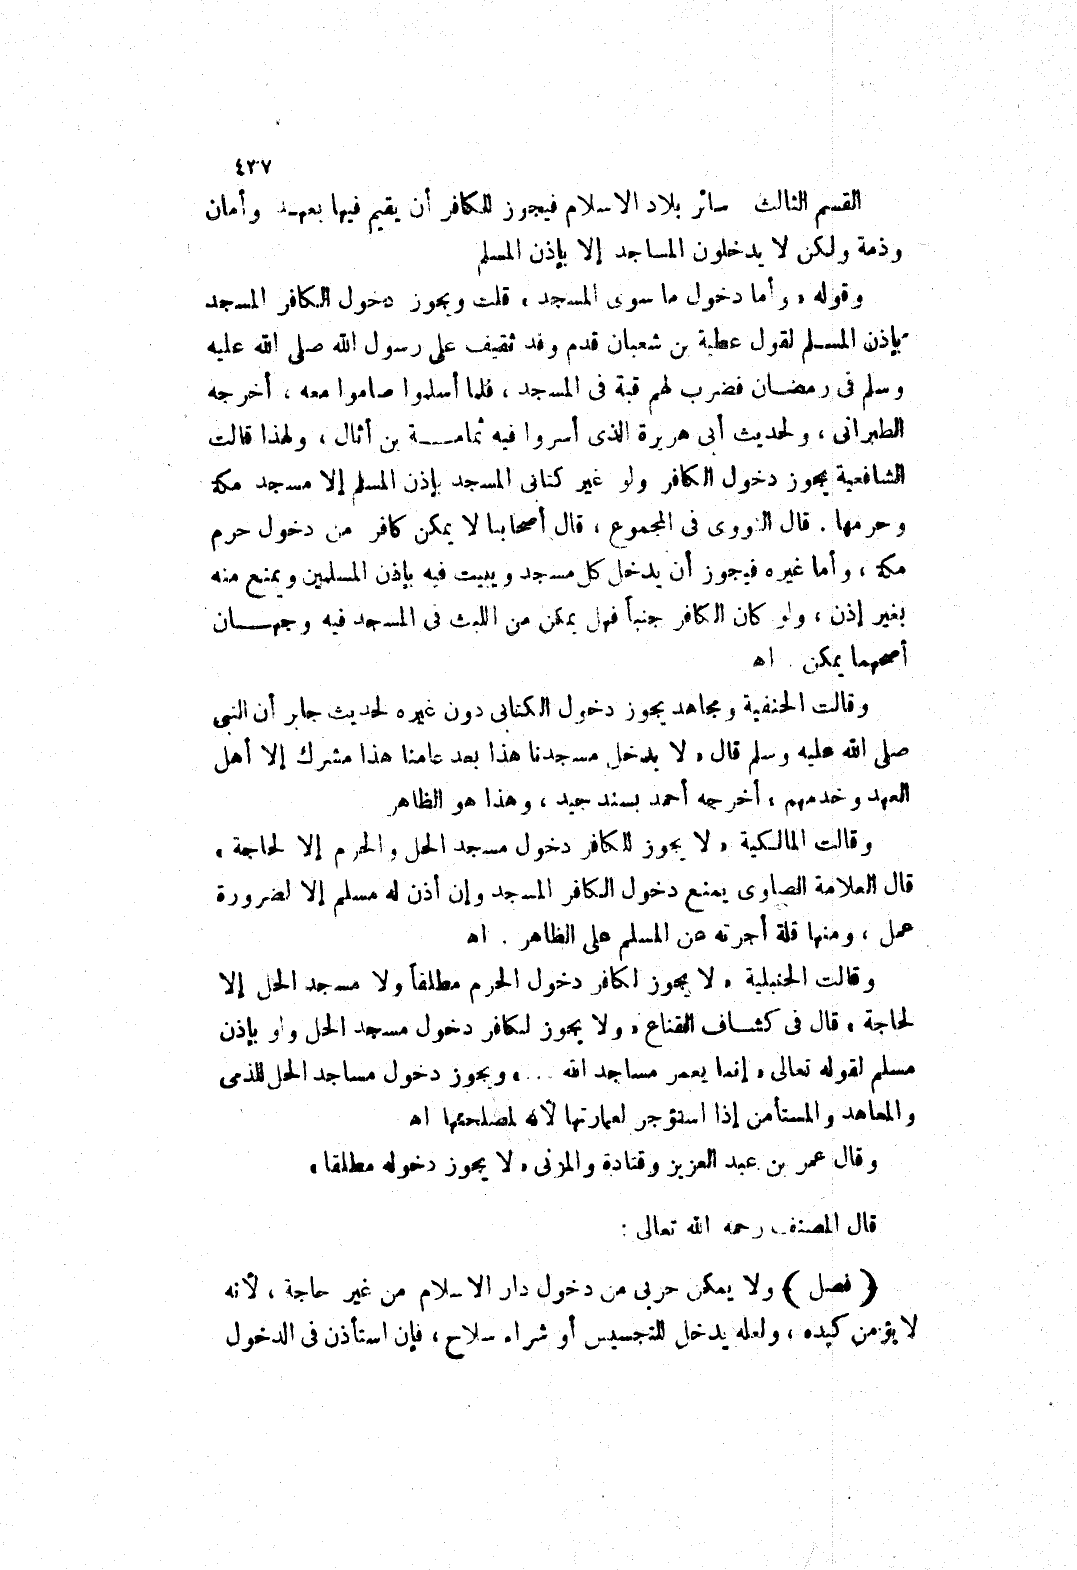 ٤٣٧
القسم الثالث سائر بلاد الاسلام فيجوز للكافر أن يقيم فيها بعهد وأمان
وذمة ولكن لا يدخلون المساجد إلا بإذن المسلم
وقوله « وأما دخول ما سوى المسجد » قلت ويجوز دخول الكافر المسجد
بإذن المسلم لقول عطية بن شعبان قدم وفد ثقيف على رسول الله صلى الله عليه
وسلم فى رمضان فضرب لهم قبة فى المسجد ، فلما أسلموا صاموا معه ، أخرجه
الطبرانى ، ولحديث أبى هريرة الذى أسروا فيه ثمامة بن أثال ، ولهذا قالت
الشافعية يجوز دخول الكافر ولو غير كتابى المسجد بإذن المسلم إلا مسجد مكة
وحرمها . قال النووى فى المجموع ، قال أصحابنا لا يمكن كافر من دخول حرم
مكة ، وأما غيره فيجوز أن يدخل كل مسجد ويبيت فيه بإذن المسلمين ويمنع منه
بغير إذن ، ولو كان الكافر جنباً فهل يمكن من اللبث فى المسجد فيه وجهان
أصحهما يمكن . اه
وقالت الحنفية ومجاهد يجوز دخول الكتابى دون غيره لحديث جابر أن النبى
صلى الله عليه وسلم قال « لا يدخل مسجدنا هذا بعد عامنا هذا مشرك إلا أهل
العهد وخدمهم » أخرجه أحمد بسند جيد ، وهذا هو الظاهر
وقالت المالكية « لا يجوز للكافر دخول مسجد الحل والحرم إلا لحاجة »
قال العلامة الصاوى يمنع دخول الكافر المسجد وإن أذن له مسلم إلا لضرورة
عمل ، ومنها قلة أجرته عن المسلم على الظاهر . اه
وقالت الحنبلية « لا يجوز لكافر دخول الحرم مطلقاً ولا مسجد الحل إلا
لحاجة » قال فى كشاف القناع « ولا يجوز لكافر دخول مسجد الحل ولو بإذن
مسلم لقوله تعالى « إنما يعمر مساجد الله ... » ويجوز دخول مساجد الحل للذمى
والمعاهد والمستأمن إذا استؤجر لعمارتها لأنه لمصلحتها اه
وقال عمر بن عبد العزيز وقتادة والمزنى « لا يجوز دخوله مطلقا »
قال المصنف رحمه الله تعالى :
( فصل ) ولا يمكن حربى من دخول دار الاسلام من غير حاجة ، لأنه
لا يؤمن كيده ، ولعله يدخل للتجسيس أو شراء سلاح ، فإن استأذن فى الدخول